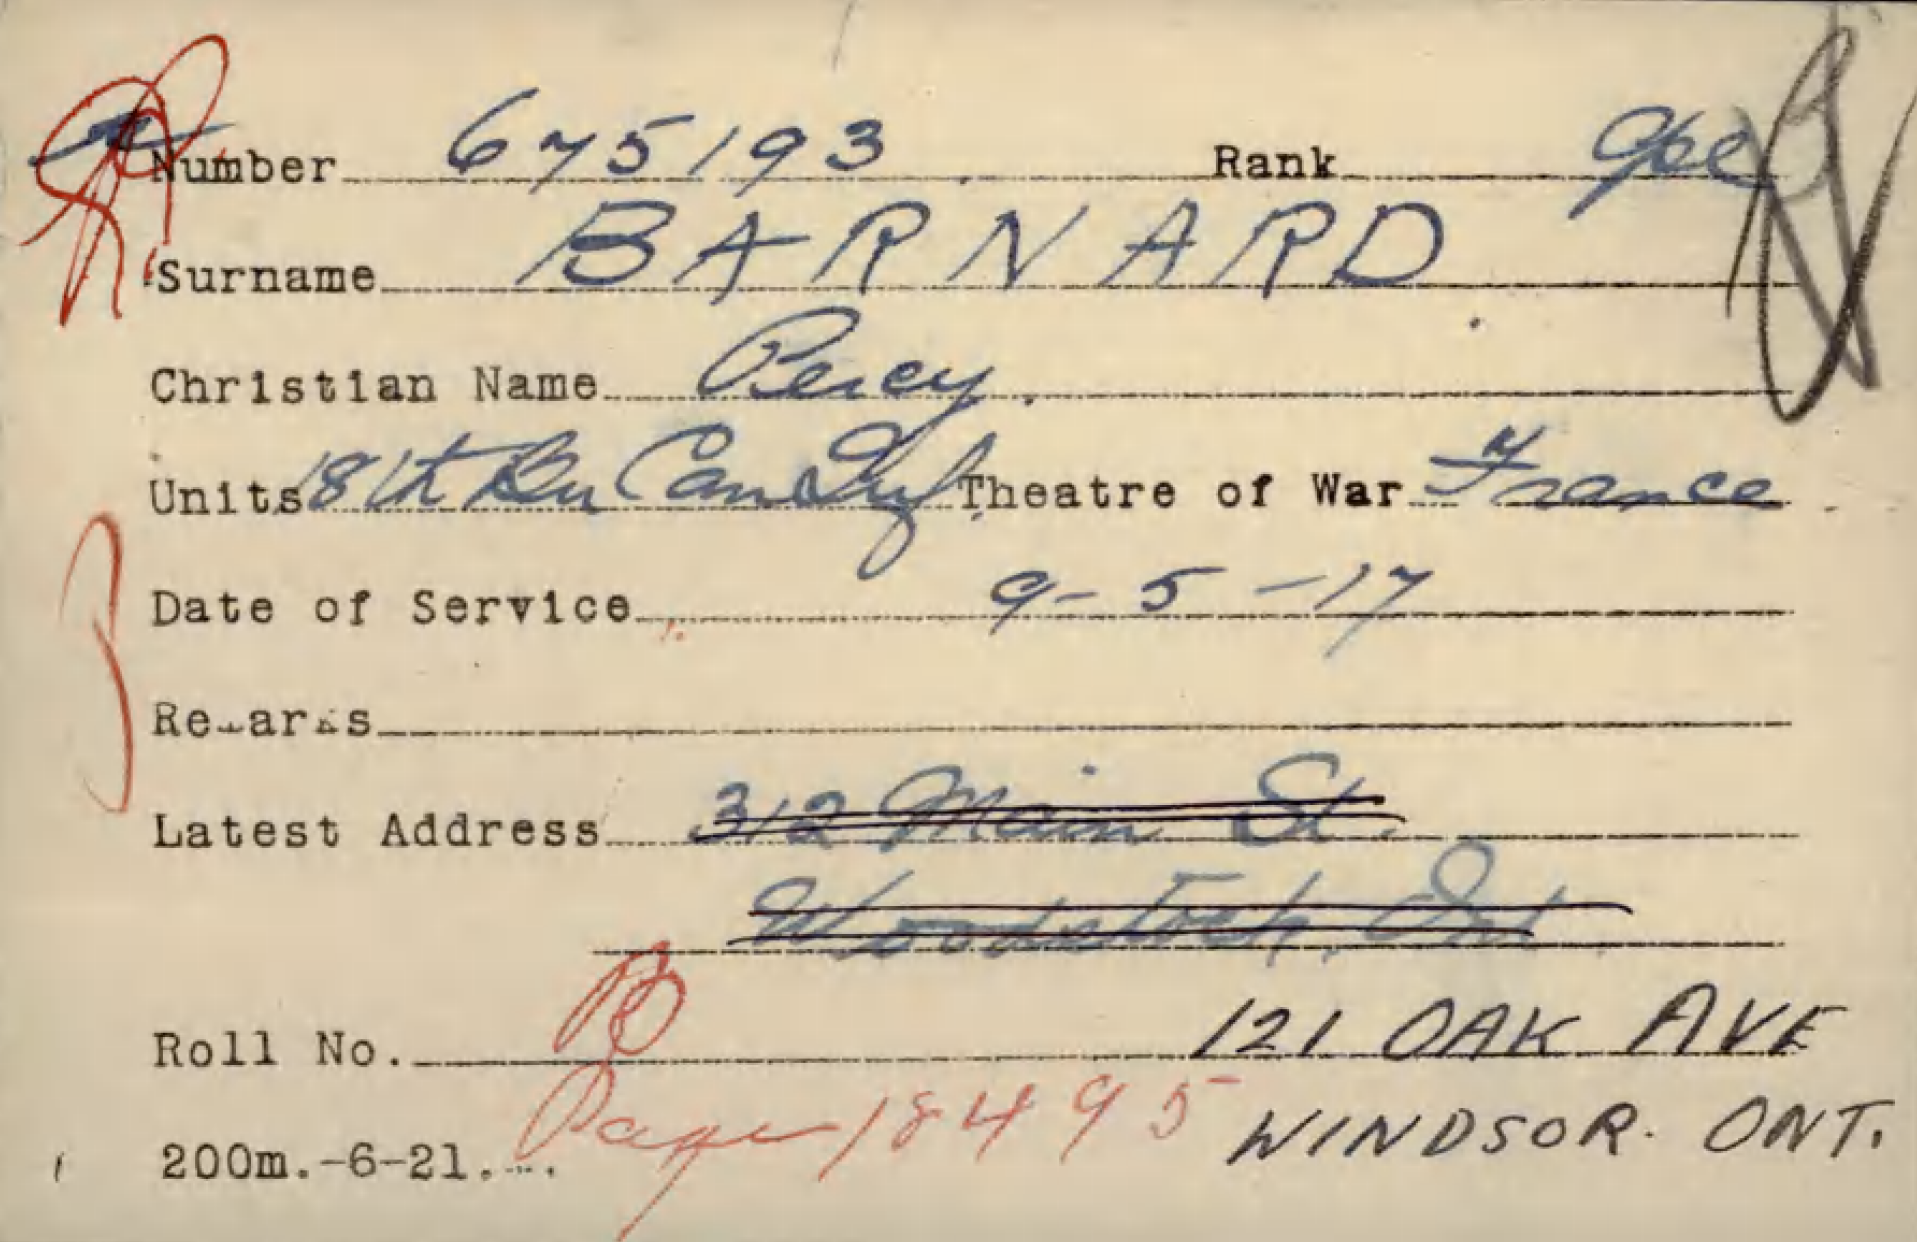 Number 675193 Rank Cpl
Surname BARNARD
Christian Name Percy.
Units 18th Bn Can Inf Theatre of War France
Date of Service 9-5-17
Remarks
Latest Address 312 Main St.
Woodstock, Ont.
Roll No. B 121 OAK AVE
Page 18495 WINDSOR. ONT.
200m.-6-21.